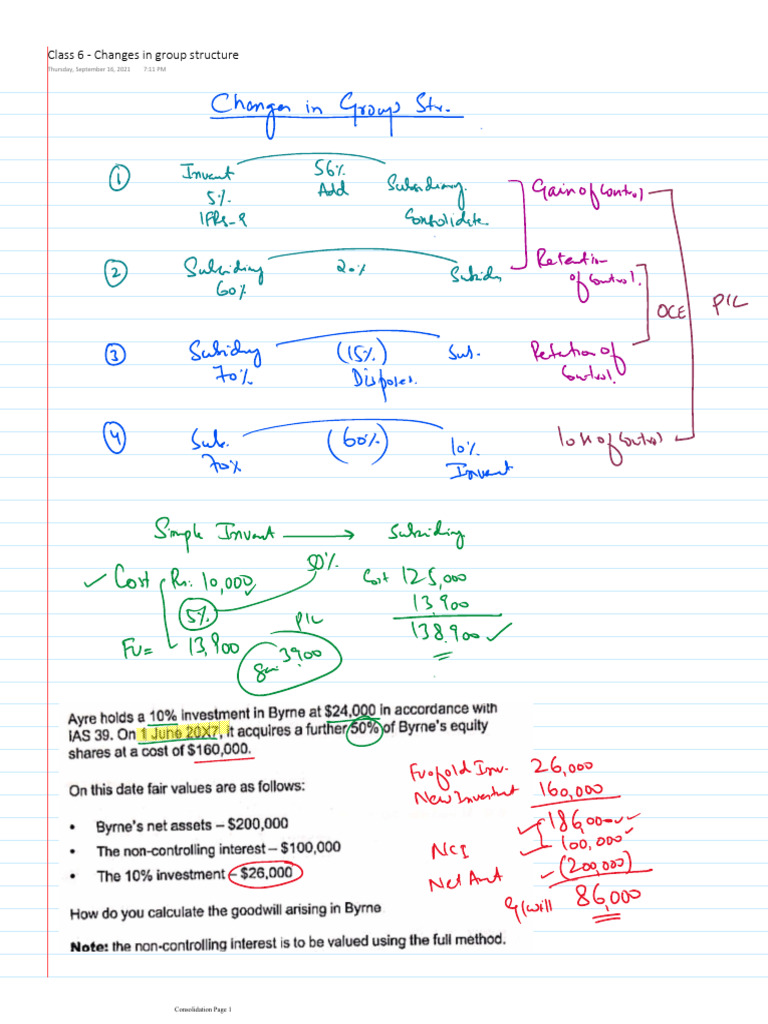 Class 6 - Changes in group structure
Thursday, September 16, 2021 7:11 PM
Changes in Group Str.
① Invent 56% Subsidiary Gain of Control
5% Add
IFRS-9 Consolidate
② Subsidiary 20% Subsidy Retention
60% of Control.
OCE P/L
③ Subsidiary (15%) Sub. Retention of
70% Disposes. Control.
④ Sub. (60%) 10% loss of Control
70% Invent
Simple Invent → Subsidiary
50%
✓ Cost Rs: 10,000 ✓ Cost 125,000
5% 13,900
P/L 138,900 ✓
FV= 13,900 Gain 3900
Ayre holds a 10% investment in Byrne at $24,000 in accordance with
IAS 39. On 1 June 20X7, it acquires a further 50% of Byrne's equity
shares at a cost of $160,000.
On this date fair values are as follows:
• Byrne's net assets – $200,000
• The non-controlling interest – $100,000
• The 10% investment – $26,000
How do you calculate the goodwill arising in Byrne
Note: the non-controlling interest is to be valued using the full method.
Fv of old Inv. 26,000
New Investment 160,000
186,000
NCI 100,000
Net Asset (200,000)
G/will 86,000
Consolidation Page 1